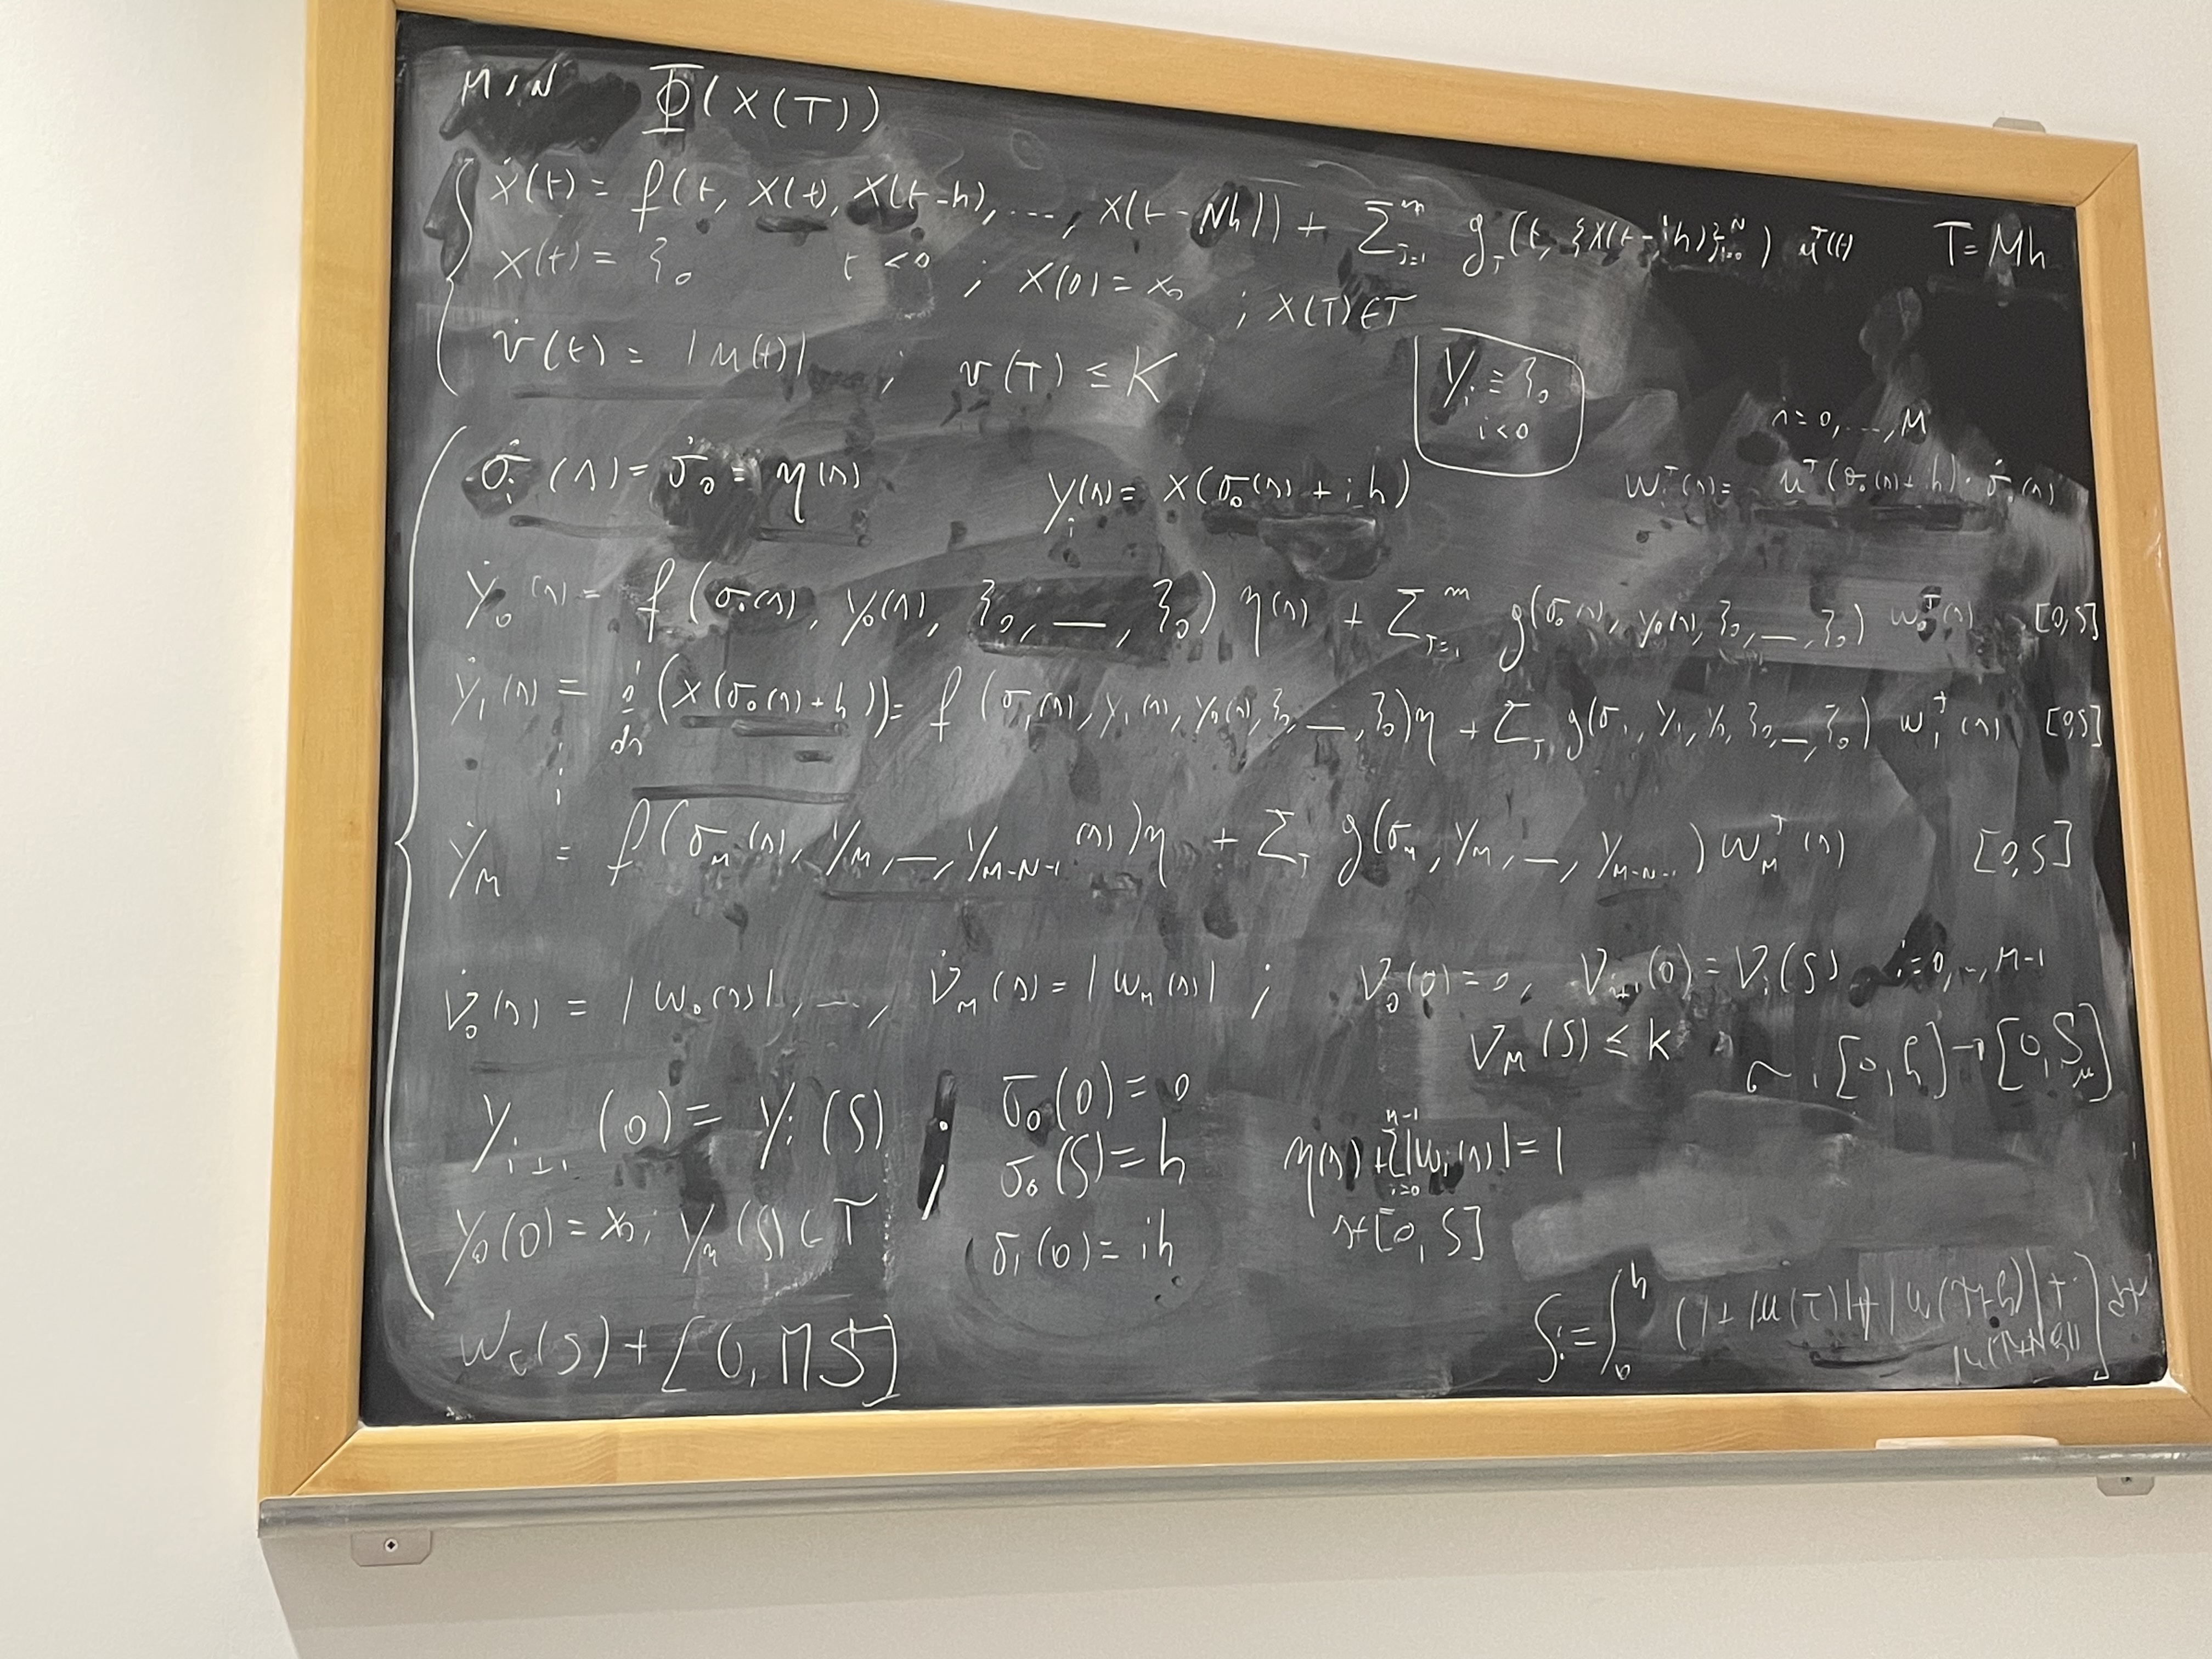 MIN Φ(X(T))
ẋ(t) = f(t, x(t), x(t-h), ..., x(t-Nh)) + Σ_{J=1}^m g_J(t, {x(t-jh)}_{j=0}^N) u^J(t) T=Mh
x(t) = ξ₀ t<0 ; x(0) = x₀ ; x(T)∈T
v̇(t) = |u(t)| ; v(T) ≤ K
y_i ≡ ξ₀
i<0
s=0,...,M
σ̇_i(s) = σ̇₀ = η(s) y_i(s) = x(σ₀(s)+ih) w_i^J(s) = u^J(σ₀(s)+ih)·σ̇₀(s)
ẏ₀(s) = f(σ₀(s), y₀(s), ξ₀, —, ξ₀) η(s) + Σ_{J=1}^m g(σ₀(s), y₀(s), ξ₀, —, ξ₀) w₀^J(s) [0,S]
ẏ₁(s) = d/ds (x(σ₀(s)+h)) = f(σ₁(s), y₁(s), y₀(s), ξ₀, —, ξ₀)η + Σ_J g(σ₁, y₁, y₀, ξ₀, —, ξ₀) w₁^J(s) [0,S]
⋮
ẏ_M = f(σ_M(s), y_M, —, y_{M-N-1}(s))η + Σ_J g(σ_M, y_M, —, y_{M-N-1}) w_M^J(s) [0,S]
v̇₀(s) = |w₀(s)|, ..., v̇_M(s) = |w_M(s)| ; v₀(0)=0, v_{i+1}(0) = v_i(S) i=0,..,M-1
v_M(S) ≤ K
σ : [0,h] → [0,S_u]
y_{i+1}(0) = y_i(S) σ₀(0) = 0
σ₀(S) = h η(s) + Σ_{i=0}^{M-1} |w_i(s)| = 1
y₀(0) = x₀; y_M(S) ∈ T σ_i(0) = ih s∈[0,S]
S := ∫_0^h (1+|u(τ)|+|u(τ+h)|+·
|u(τ+Nh)|] dτ